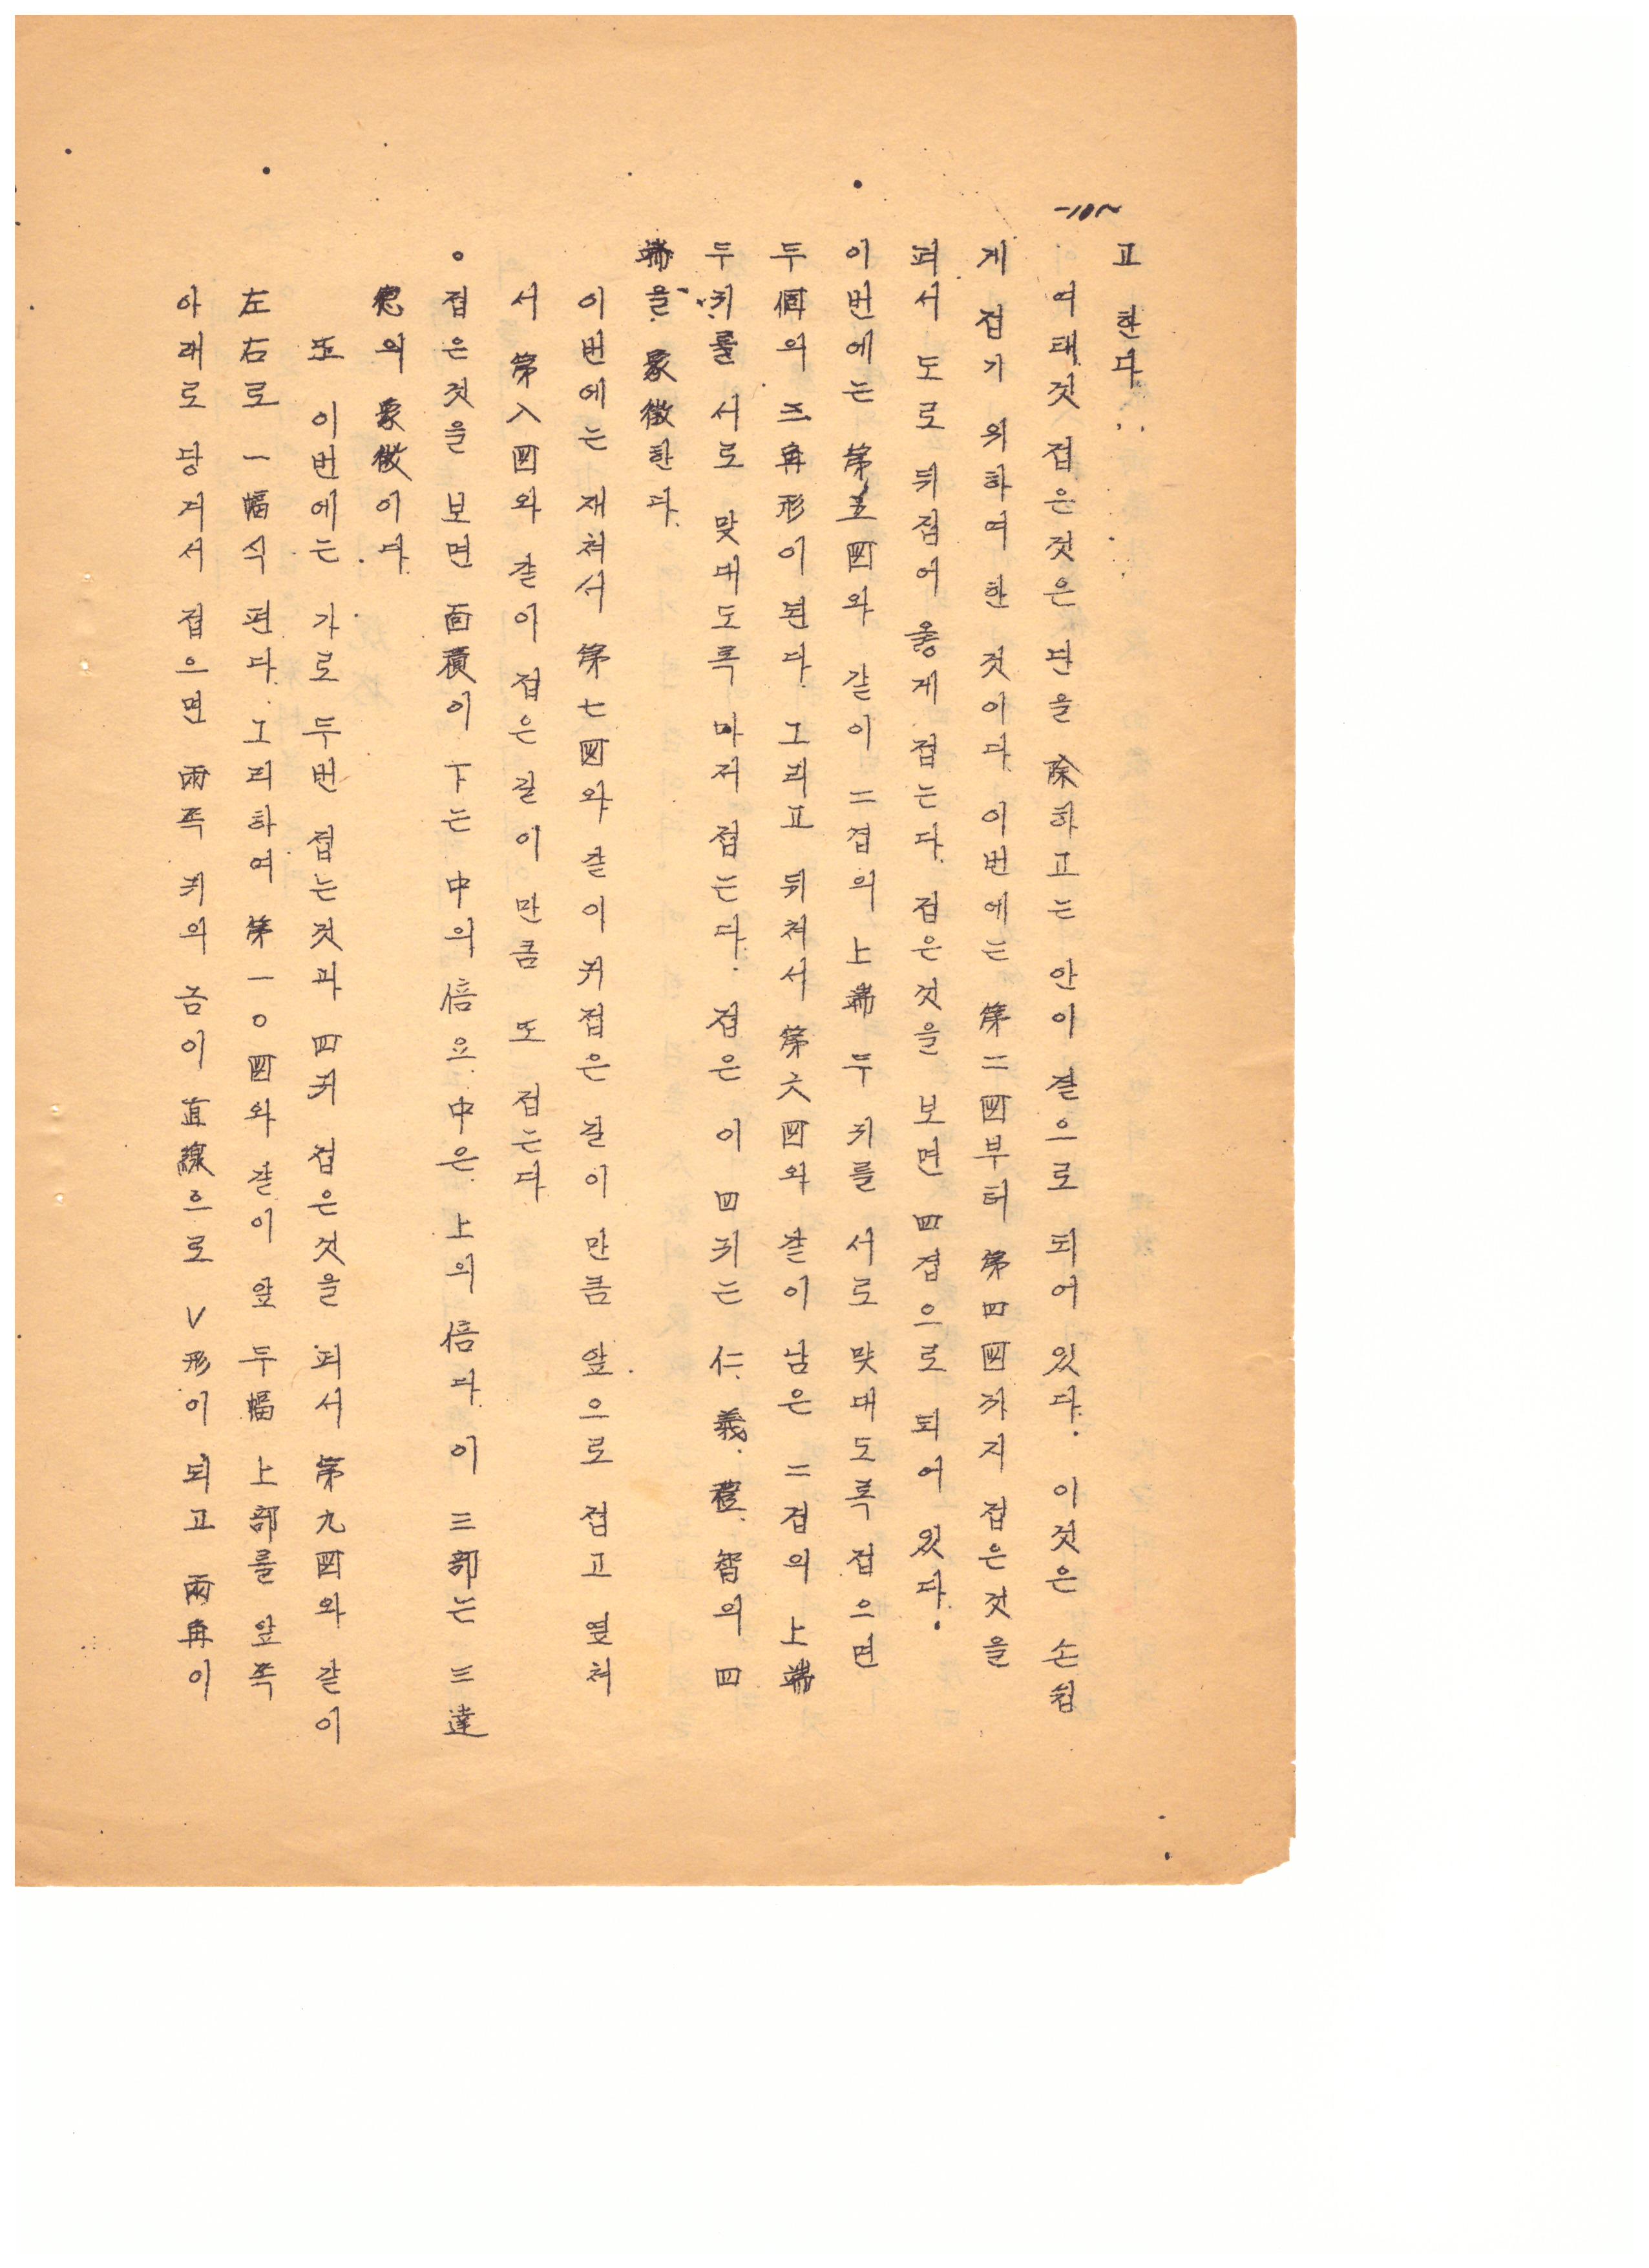 -10-
고 한다.
여태것 접은것은 단을 除하고는 안이 겉으로 되어 있다. 이것은 손쉽
게 접기 위하여 한 것이다. 이번에는 第二図부터 第四図까지 접은것을
펴서 도로 뒤집어 옳게 접는다. 접은것을 보면 四겹으로 되어 있다.
이번에는 第五図와 같이 二겹의 上端 두 귀를 서로 맞대도록 접으면
두個의 三角形이 된다. 그리고 뒤쳐서 第六図와 같이 남은 二겹의 上端
두귀를 서로 맞대도록 마저 접는다. 접은 이 四귀는 仁.義.禮.智의 四
端을 象徵한다.
이번에는 재쳐서 第七図와 같이 귀접은 길이 만큼 앞으로 접고 엎쳐
서 第八図와 같이 접은 길이 만큼 또 접는다
。접은것을 보면 面積이 下는 中의 倍요 中은 上의 倍다. 이 三部는 三達
德의 象徵이다.
또 이번에는 가로 두번 접는것과 四귀 접은것을 펴서 第九図와 같이
左右로 一幅식 편다. 그리하여 第一○図와 같이 앞 두幅 上部를 앞쪽
아래로 당겨서 접으면 兩쪽 귀의 금이 直線으로 V形이 되고 兩角이